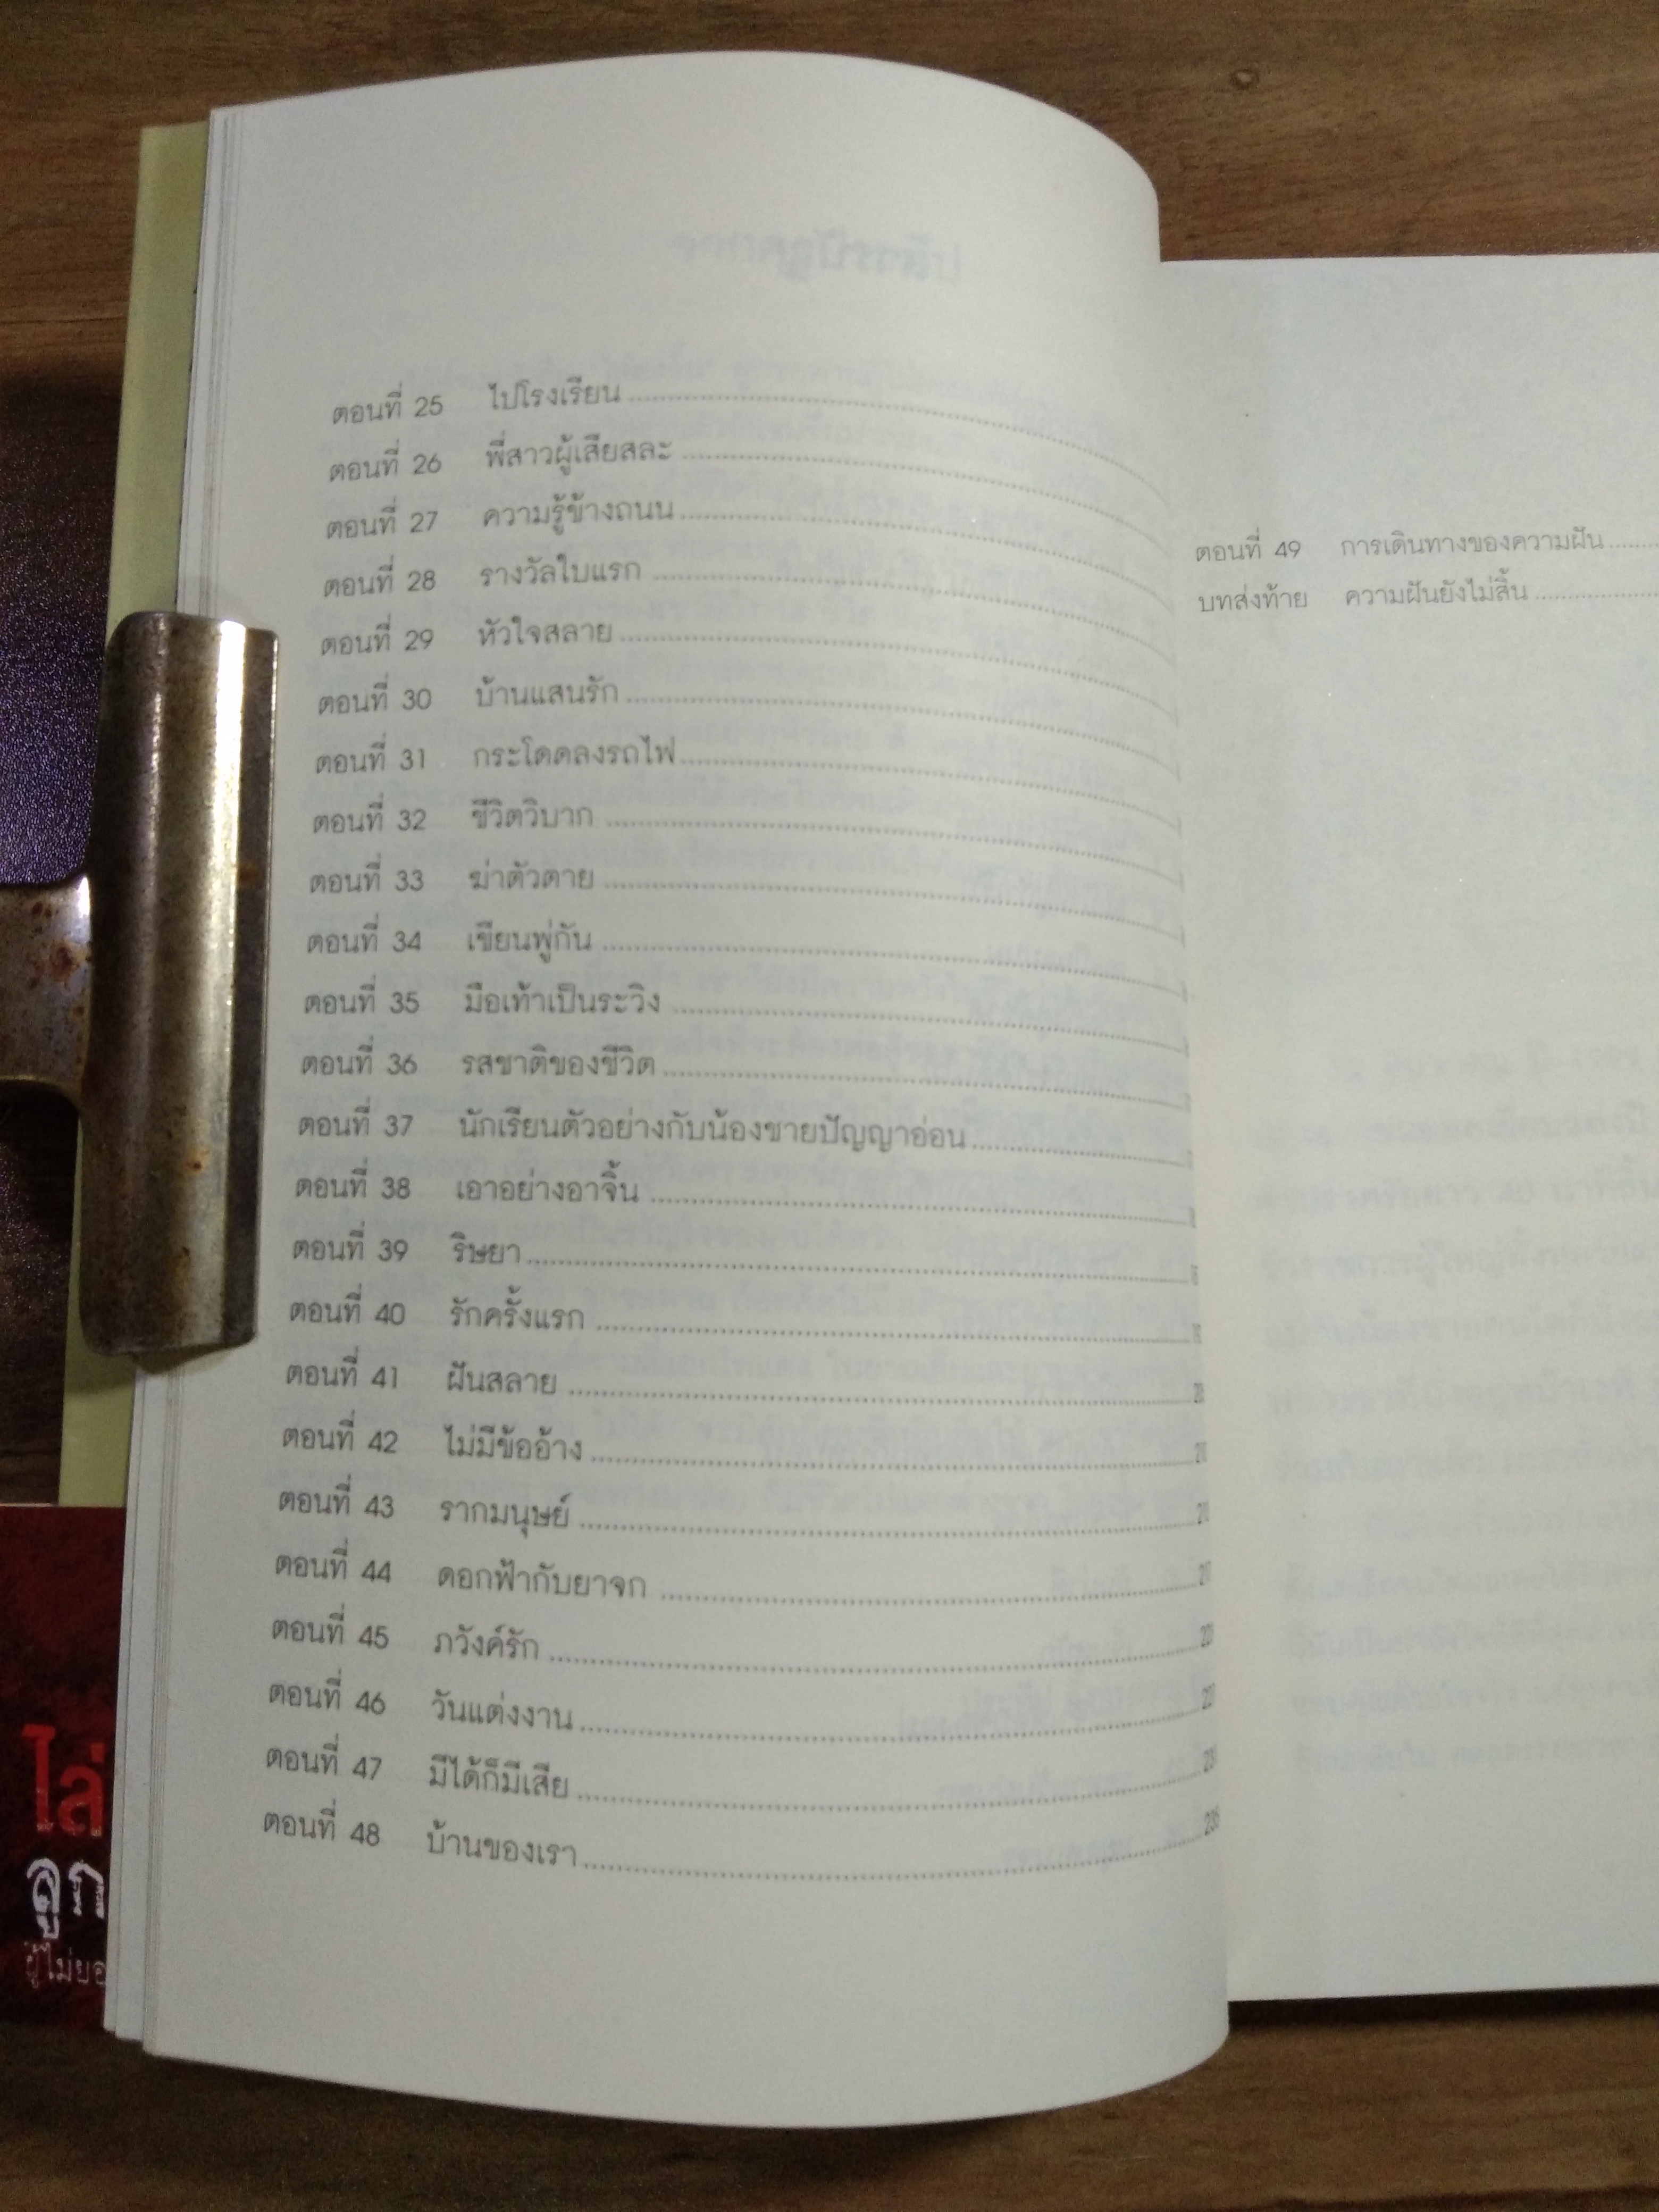 ตอนที่ 25 ไปโรงเรียน
ตอนที่ 26 พี่สาวผู้เสียสละ
ตอนที่ 27 ความรู้ข้างถนน
ตอนที่ 28 รางวัลใบแรก
ตอนที่ 29 หัวใจสลาย
ตอนที่ 30 บ้านแสนรัก
ตอนที่ 31 กระโดดลงรถไฟ
ตอนที่ 32 ชีวิตวิบาก
ตอนที่ 33 ฆ่าตัวตาย
ตอนที่ 34 เขียนพู่กัน
ตอนที่ 35 มือเท้าเป็นระวิง
ตอนที่ 36 รสชาติของชีวิต
ตอนที่ 37 นักเรียนตัวอย่างกับน้องชายปัญญาอ่อน
ตอนที่ 38 เอาอย่างอาจิ้น
ตอนที่ 39 ริษยา
ตอนที่ 40 รักครั้งแรก
ตอนที่ 41 ฝันสลาย
ตอนที่ 42 ไม่มีข้ออ้าง
ตอนที่ 43 รากมนุษย์
ตอนที่ 44 ดอกฟ้ากับยาจก
ตอนที่ 45 ภวังค์รัก
ตอนที่ 46 วันแต่งงาน
ตอนที่ 47 มีได้ก็มีเสีย
ตอนที่ 48 บ้านของเรา
ตอนที่ 49 การเดินทางของความฝัน
บทส่งท้าย ความฝันยังไม่สิ้น
ไล่
ลูก
ผู้ไม่ยอ